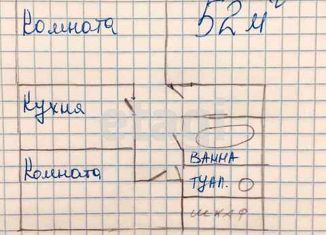 Комната
52 м²
Кухня
ВАННА
Комната
ТУАЛ.
ШКАФ